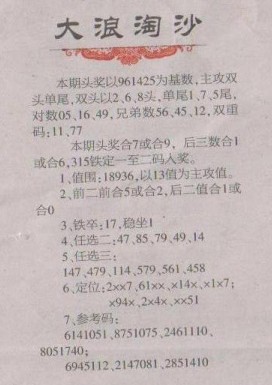 大浪淘沙
本期头奖以961425为基数,主攻双
头单尾,双头以2、6、8头,单尾1、7、5尾,
对数05、16、49,兄弟数56、45、12,双重
码:11、77
本期头奖合7或合9，后三数合1
或合6,315铁定一至二码入奖。
1、值围:18936,以13值为主攻值。
2、前二前合5或合2,后二值合1或
合0
3、铁卒:17,稳坐1
4、任选二:47、85、79、49、14
5、任选三:
147、479、114、579、561、458
6、定位:2xx7、61xx、x14x、x1x7;
x94x、2x4x、xx51
7、参考码:
6141051、8751075、2461110、
8051740;
6945112、2147081、2851410